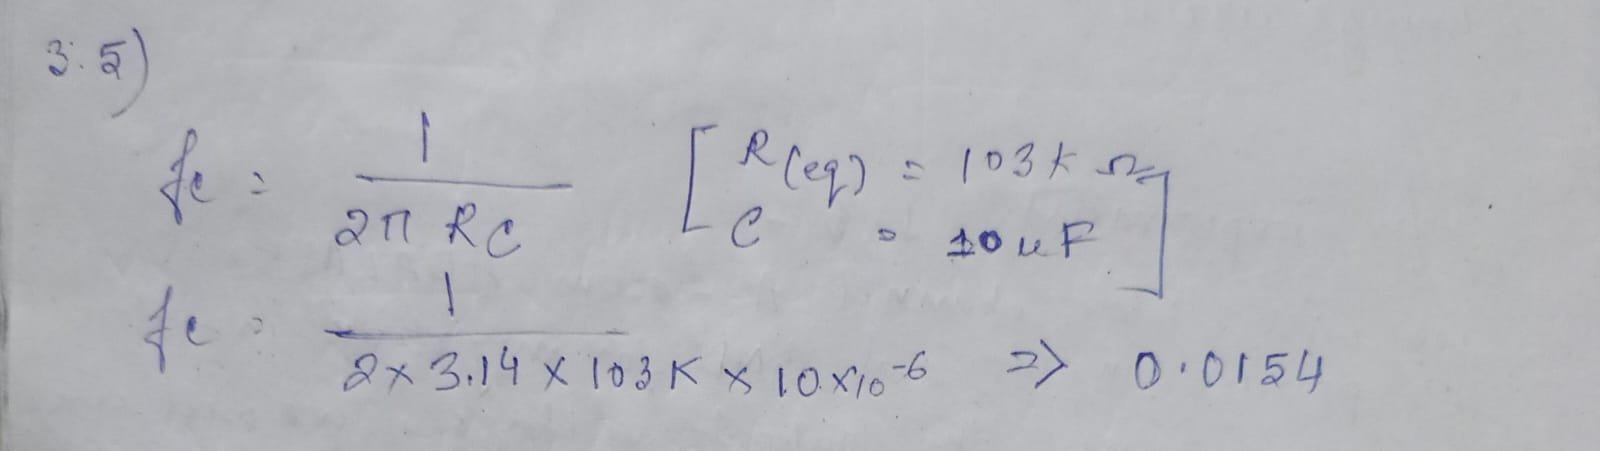 3.5)
fc = 1 / 2π RC [ R(eq) = 103K Ω
C = 10uF ]
fc = 1 / 2x3.14 x 103K x 10x10^-6 => 0.0154